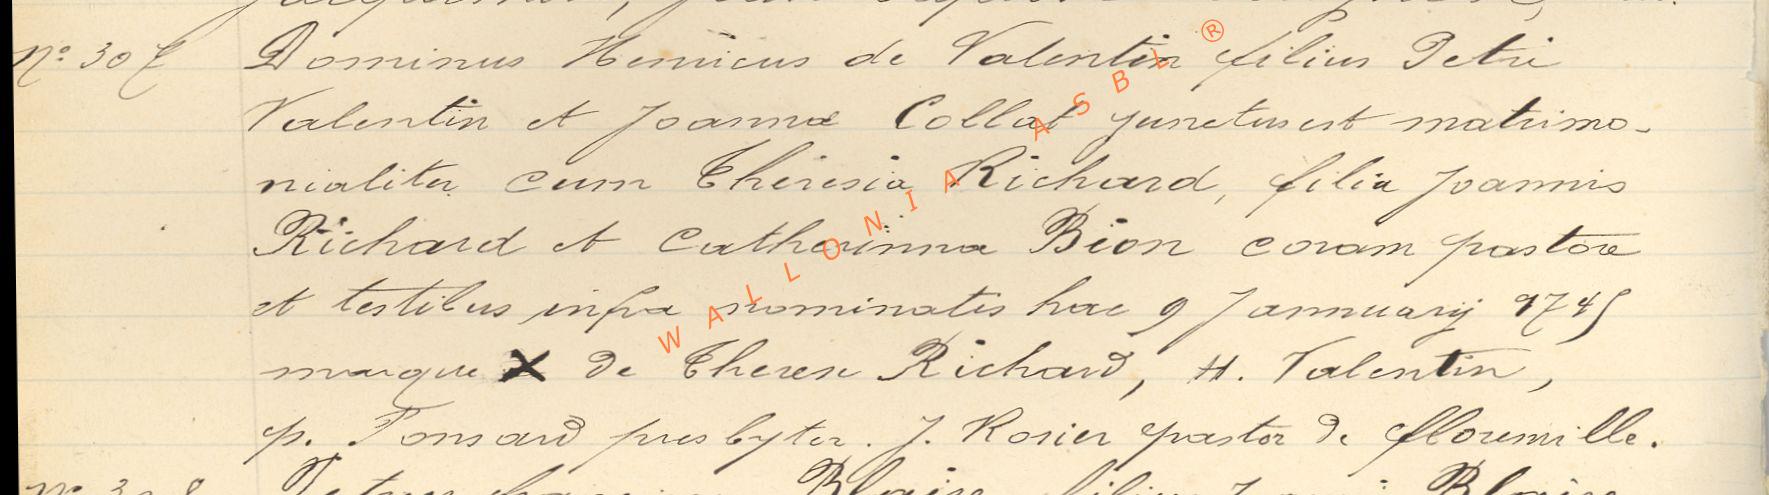 N° 307 Dominus Henricus de Valentin filius Petri
Valentin et Joanna Collat junctus est matrimo-
nialiter cum Théresia Richard, filia Joannis
Richard et Catherinna Bion coram pastore
et testibus infra nominatis hac 9 Jannuarij 1745
marque X de Therese Richard, H. Valentin,
p. Ponsard presbyter. J. Rosier pastor de florenville.
WALLONIA ASBL ®